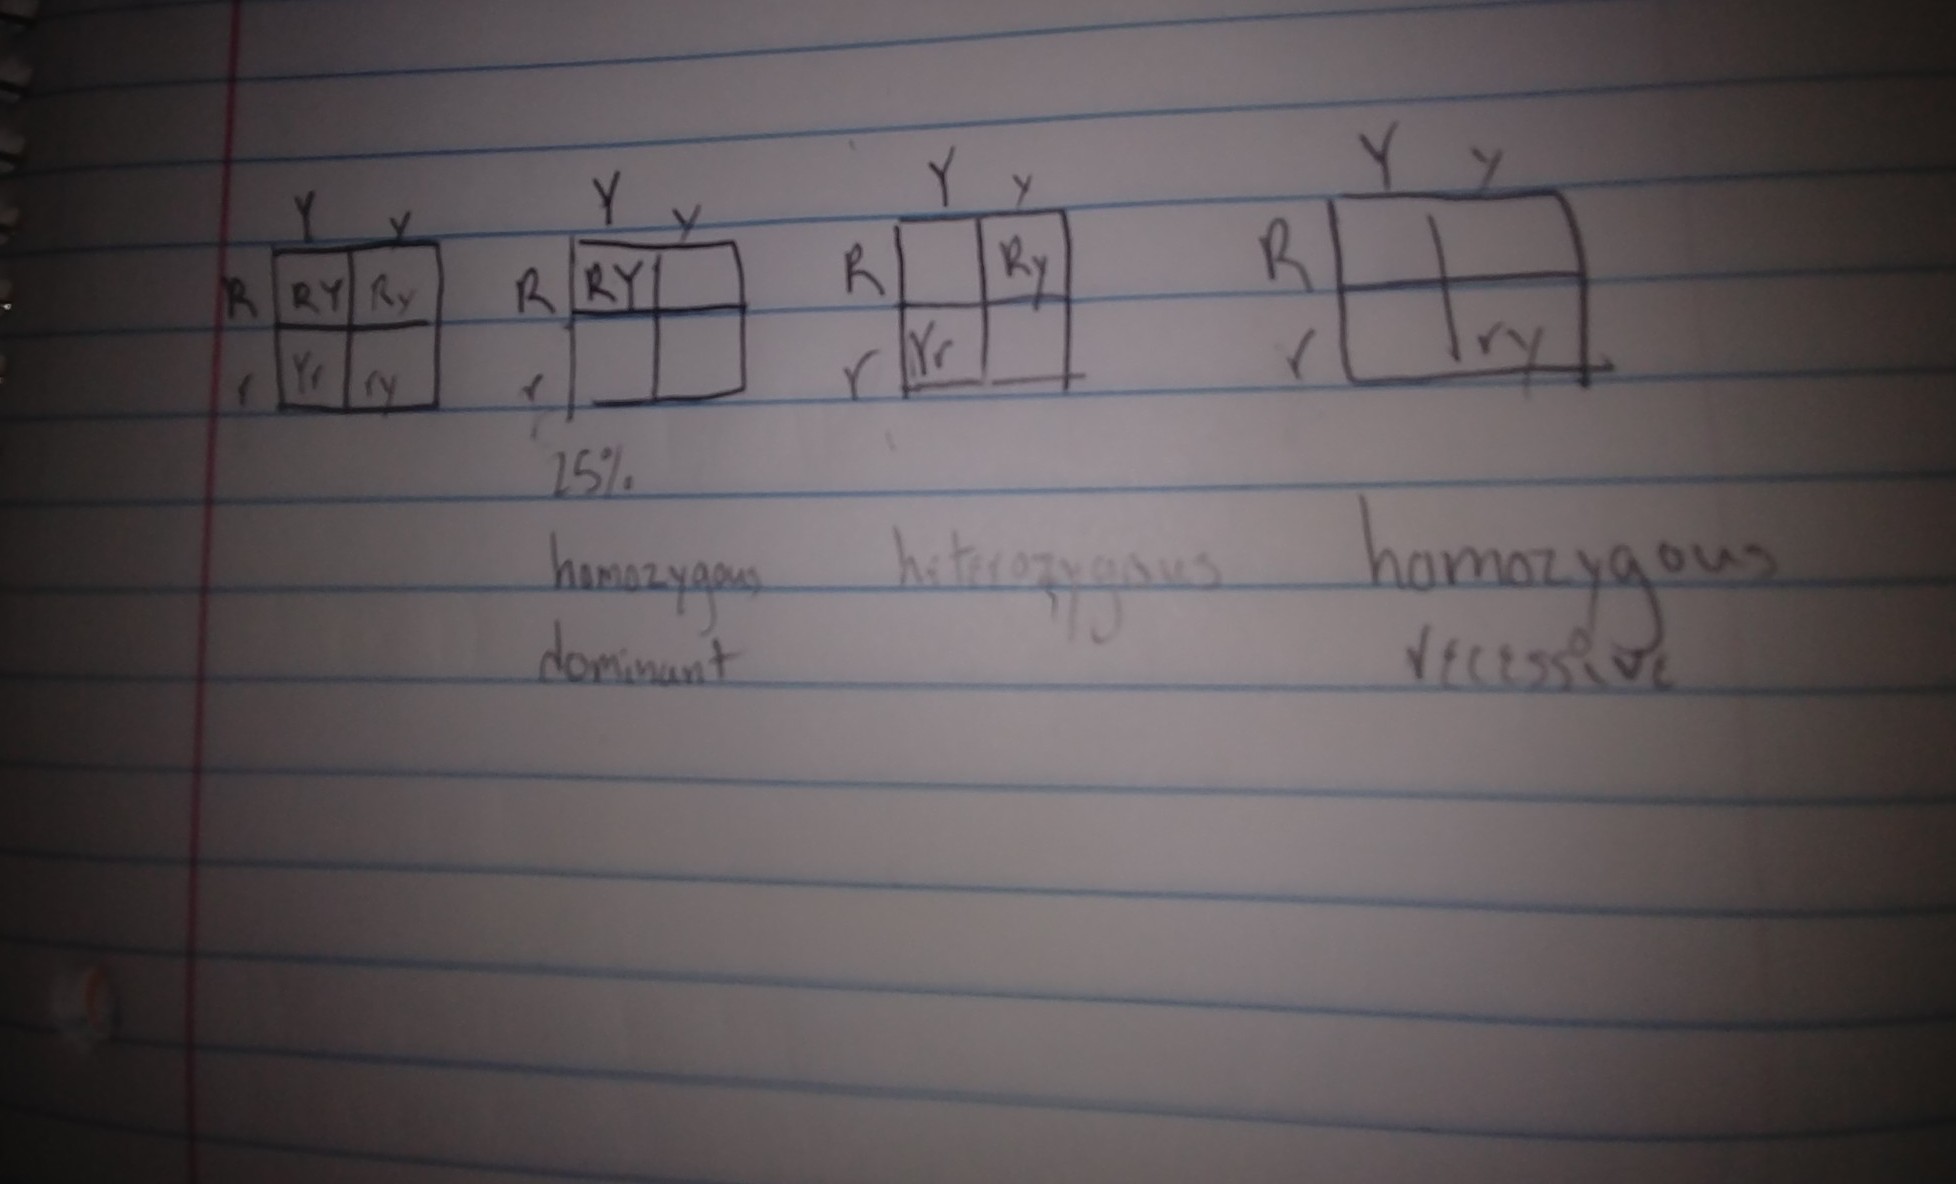 Y y Y y Y y Y y
R RY Ry R RY R Ry R
r Yr ry r r Yr r ry
25%
homozygous heterozygous homozygous
dominant recessive